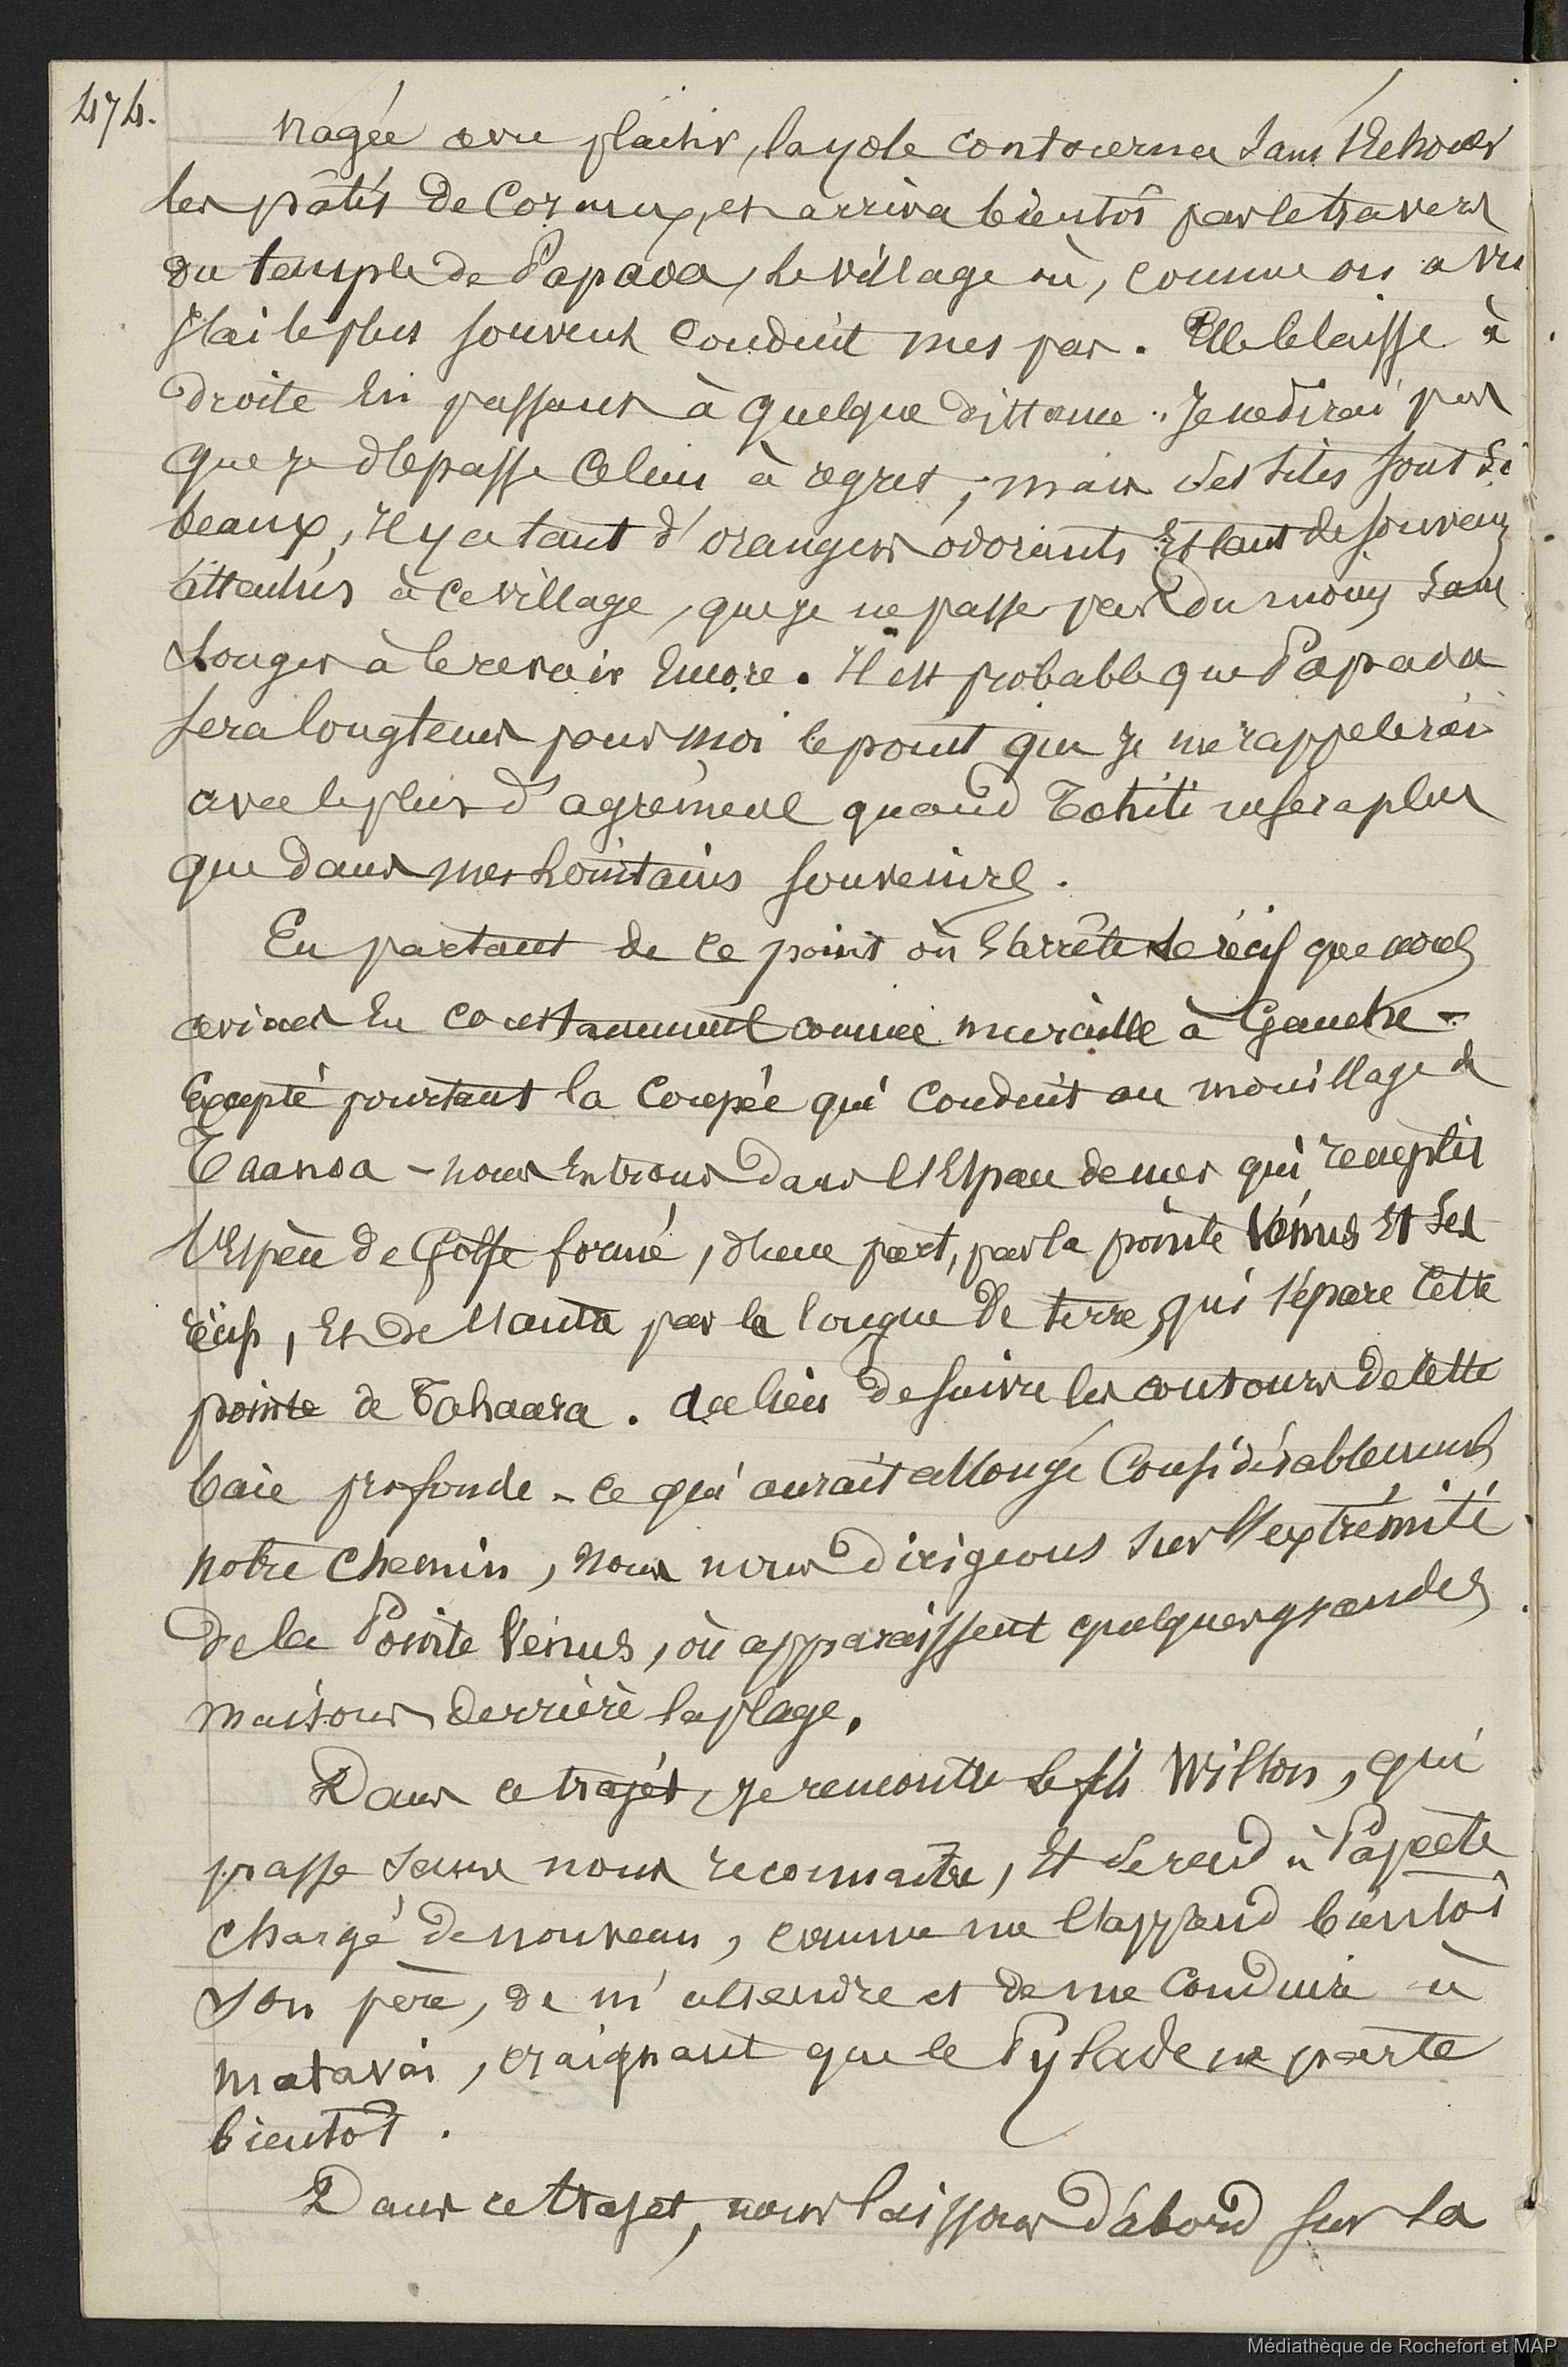 474.
Nagée avec plaisir, la yole contourna sans s'échouer
les pâtés de Coraux, et arriva bientôt par le travers
du temple de Papaoa, le village où, comme on a vu
j'ai le plus souvent conduit mes pas. Elle le laisse à
droite en passant à quelque distance. Je ne dirai pas
que je dépasse celui-ci à regret; mais ses sites sont si
beaux, il y a tant d'orangers odorants et tant de souvenirs
attachés à ce village, que je ne passe pas du moins sans
songer à le revoir encore. Il est probable que Papaoa
sera longtems pour moi le point que je me rappelerai
avec le plus d'agrément quand Tahiti ne sera plus
que dans mes lointains souvenirs.
En partant de ce point où s'arrête le récif que nous
avions eu constamment comme muraille à Gauche -
Excepté pourtant la Coupée qui conduit au mouillage de
Taanoa - nous entrons dans l'Espace de mer qui remplit
l'Espèce de Golfe formé, d'une part, par la pointe Vénus et ses
récifs, et de l'autre par la langue de terre qui sépare cette
pointe de Tahaara. Au lieu de suivre les contours de cette
baie profonde - ce qui aurait allongé Considérablement
notre chemin, nous nous dirigeons sur l'extrémité
de la Pointe Vénus, où apparaissent quelques grandes
maisons derrière la plage.
Dans ce trajet, je rencontre le fils Wilson, qui
passe sans nous reconnaitre, et se rend à Papeete
chargé de nouveau, comme me l'apprend bientôt
son père, de m'attendre et de me conduire à
Matavai, craignant que le Pylade ne parte
bientôt.
Dans ce trajet, nous laissons d'abord sur la
Médiathèque de Rochefort et MAP